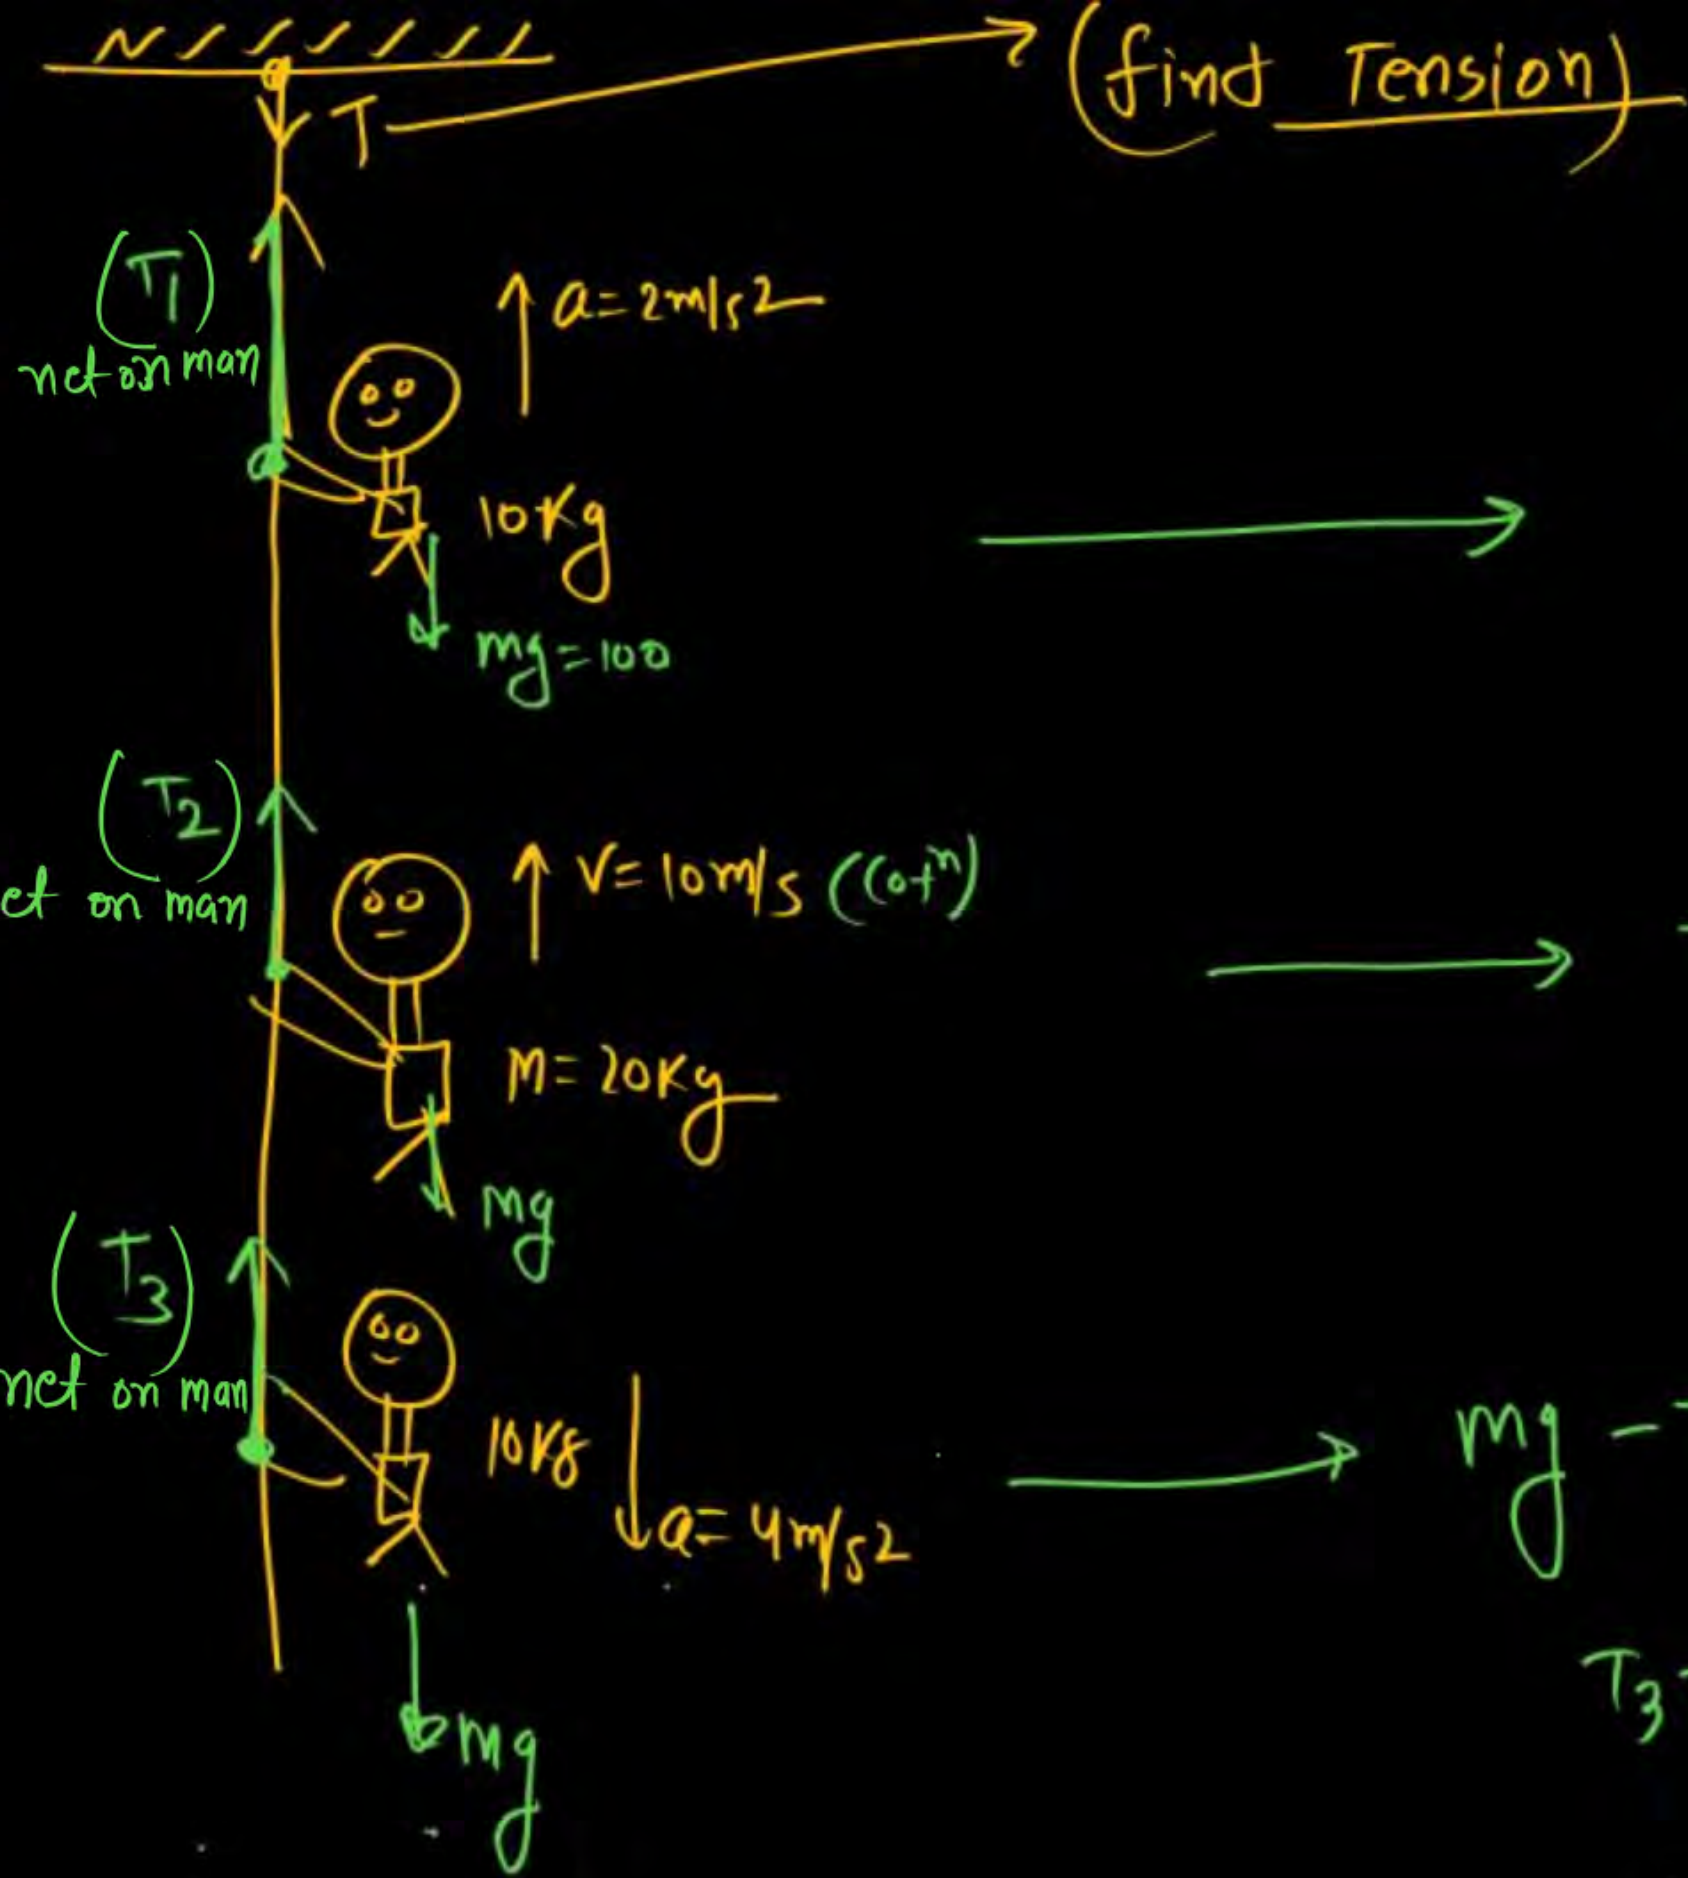 T (find Tension)
(T1)
net on man
a=2m/s2
10Kg
mg=100
(T2)
et on man
V=10m/s ((o+n)
M=20Kg
mg
(T3)
net on man
10Kg
a=4m/s2
mg -
T3
mg